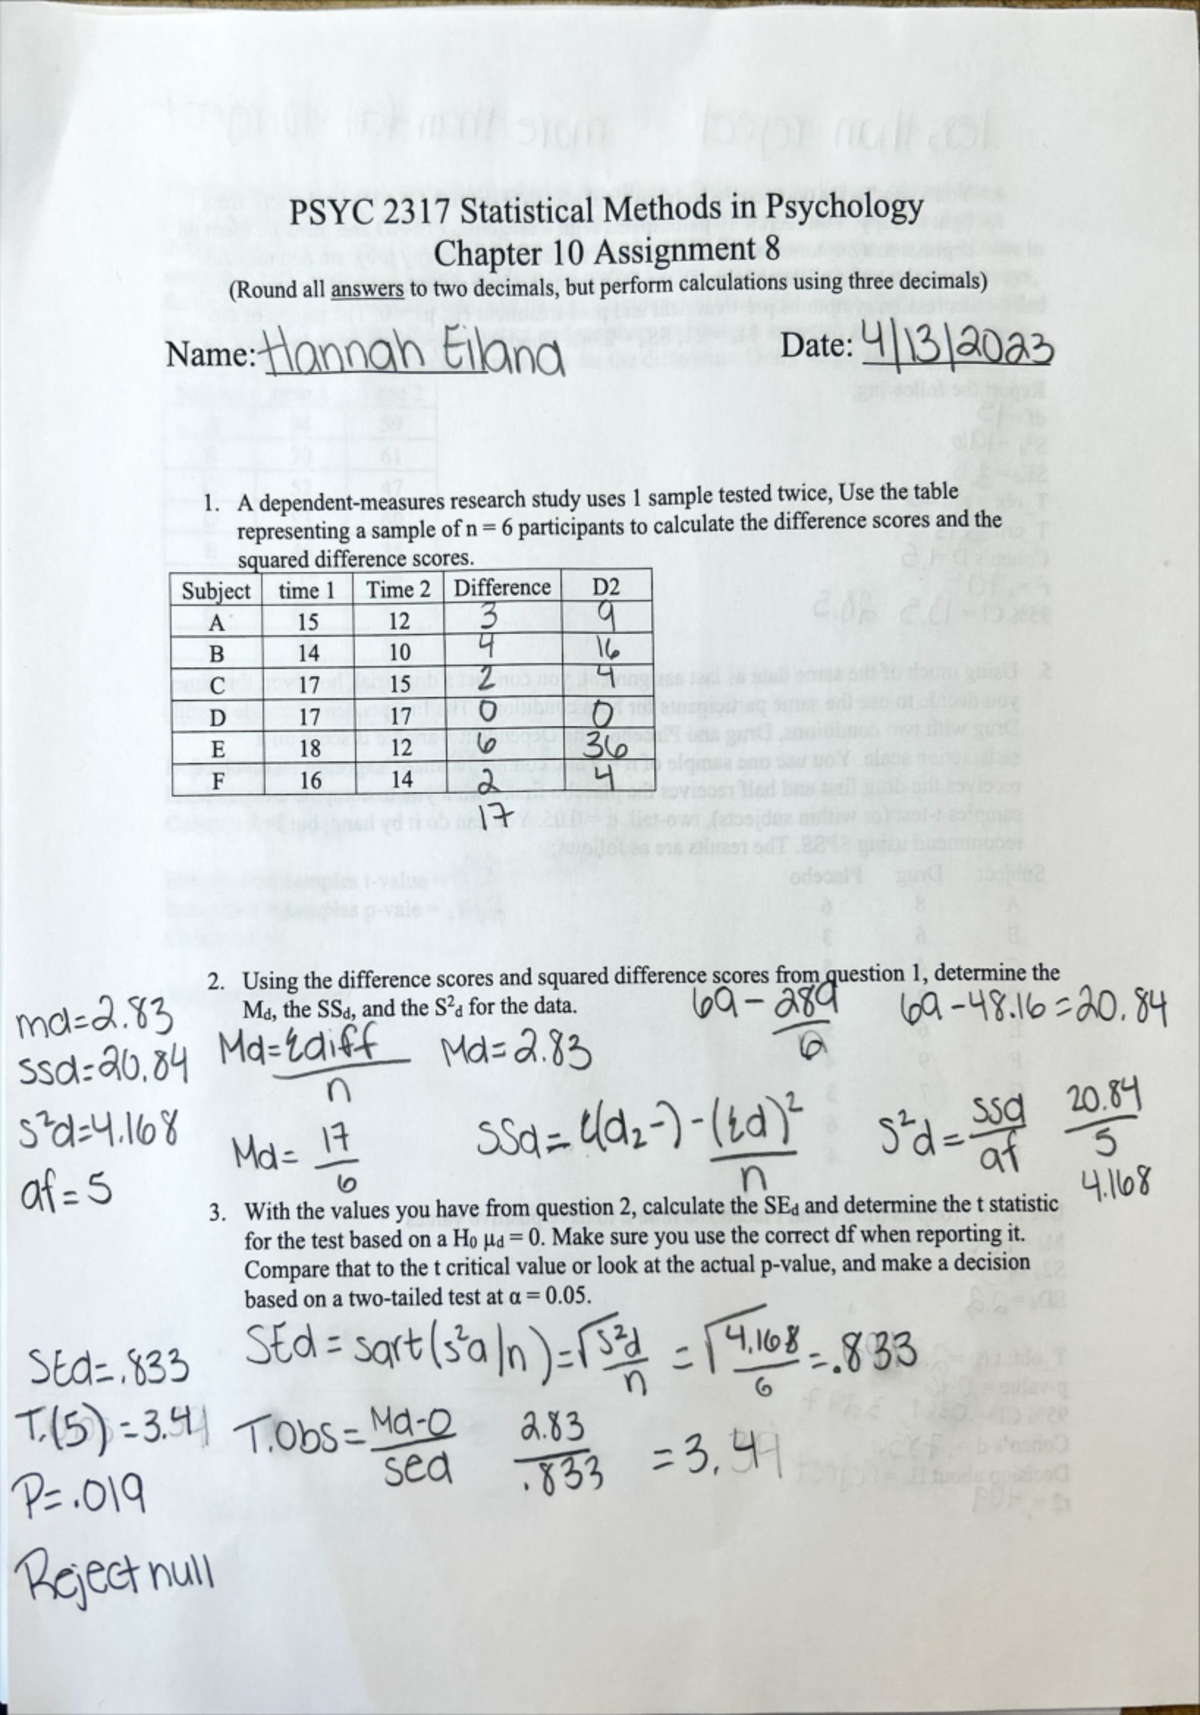 PSYC 2317 Statistical Methods in Psychology
Chapter 10 Assignment 8
(Round all answers to two decimals, but perform calculations using three decimals)
Name: Hannah Eiland Date: 4/13/2023
1. A dependent-measures research study uses 1 sample tested twice, Use the table
representing a sample of n = 6 participants to calculate the difference scores and the
squared difference scores.
Subject time 1 Time 2 Difference D2
A 15 12 3 9
B 14 10 4 16
C 17 15 2 4
D 17 17 0 0
E 18 12 6 36
F 16 14 2 4
17
2. Using the difference scores and squared difference scores from question 1, determine the
Md, the SSd, and the S²d for the data.
69 - 289/6 69 - 48.16 = 20.84
md = 2.83
ssd = 20.84
s²d = 4.168
df = 5
Md = Σdiff/n Md = 2.83
Md = 17/6
SSd = Σ(d2-) - (Σd)²/n
S²d = ssd/df 20.84/5
4.168
3. With the values you have from question 2, calculate the SEd and determine the t statistic
for the test based on a H₀ μd = 0. Make sure you use the correct df when reporting it.
Compare that to the t critical value or look at the actual p-value, and make a decision
based on a two-tailed test at α = 0.05.
SEd = .833
T.(5) = 3.41
P = .019
Reject null
SEd = sqrt(s²d/n) = √s²d/n = √4.168/6 = .833
T.Obs = Md-0/sed 2.83/.833 = 3.4